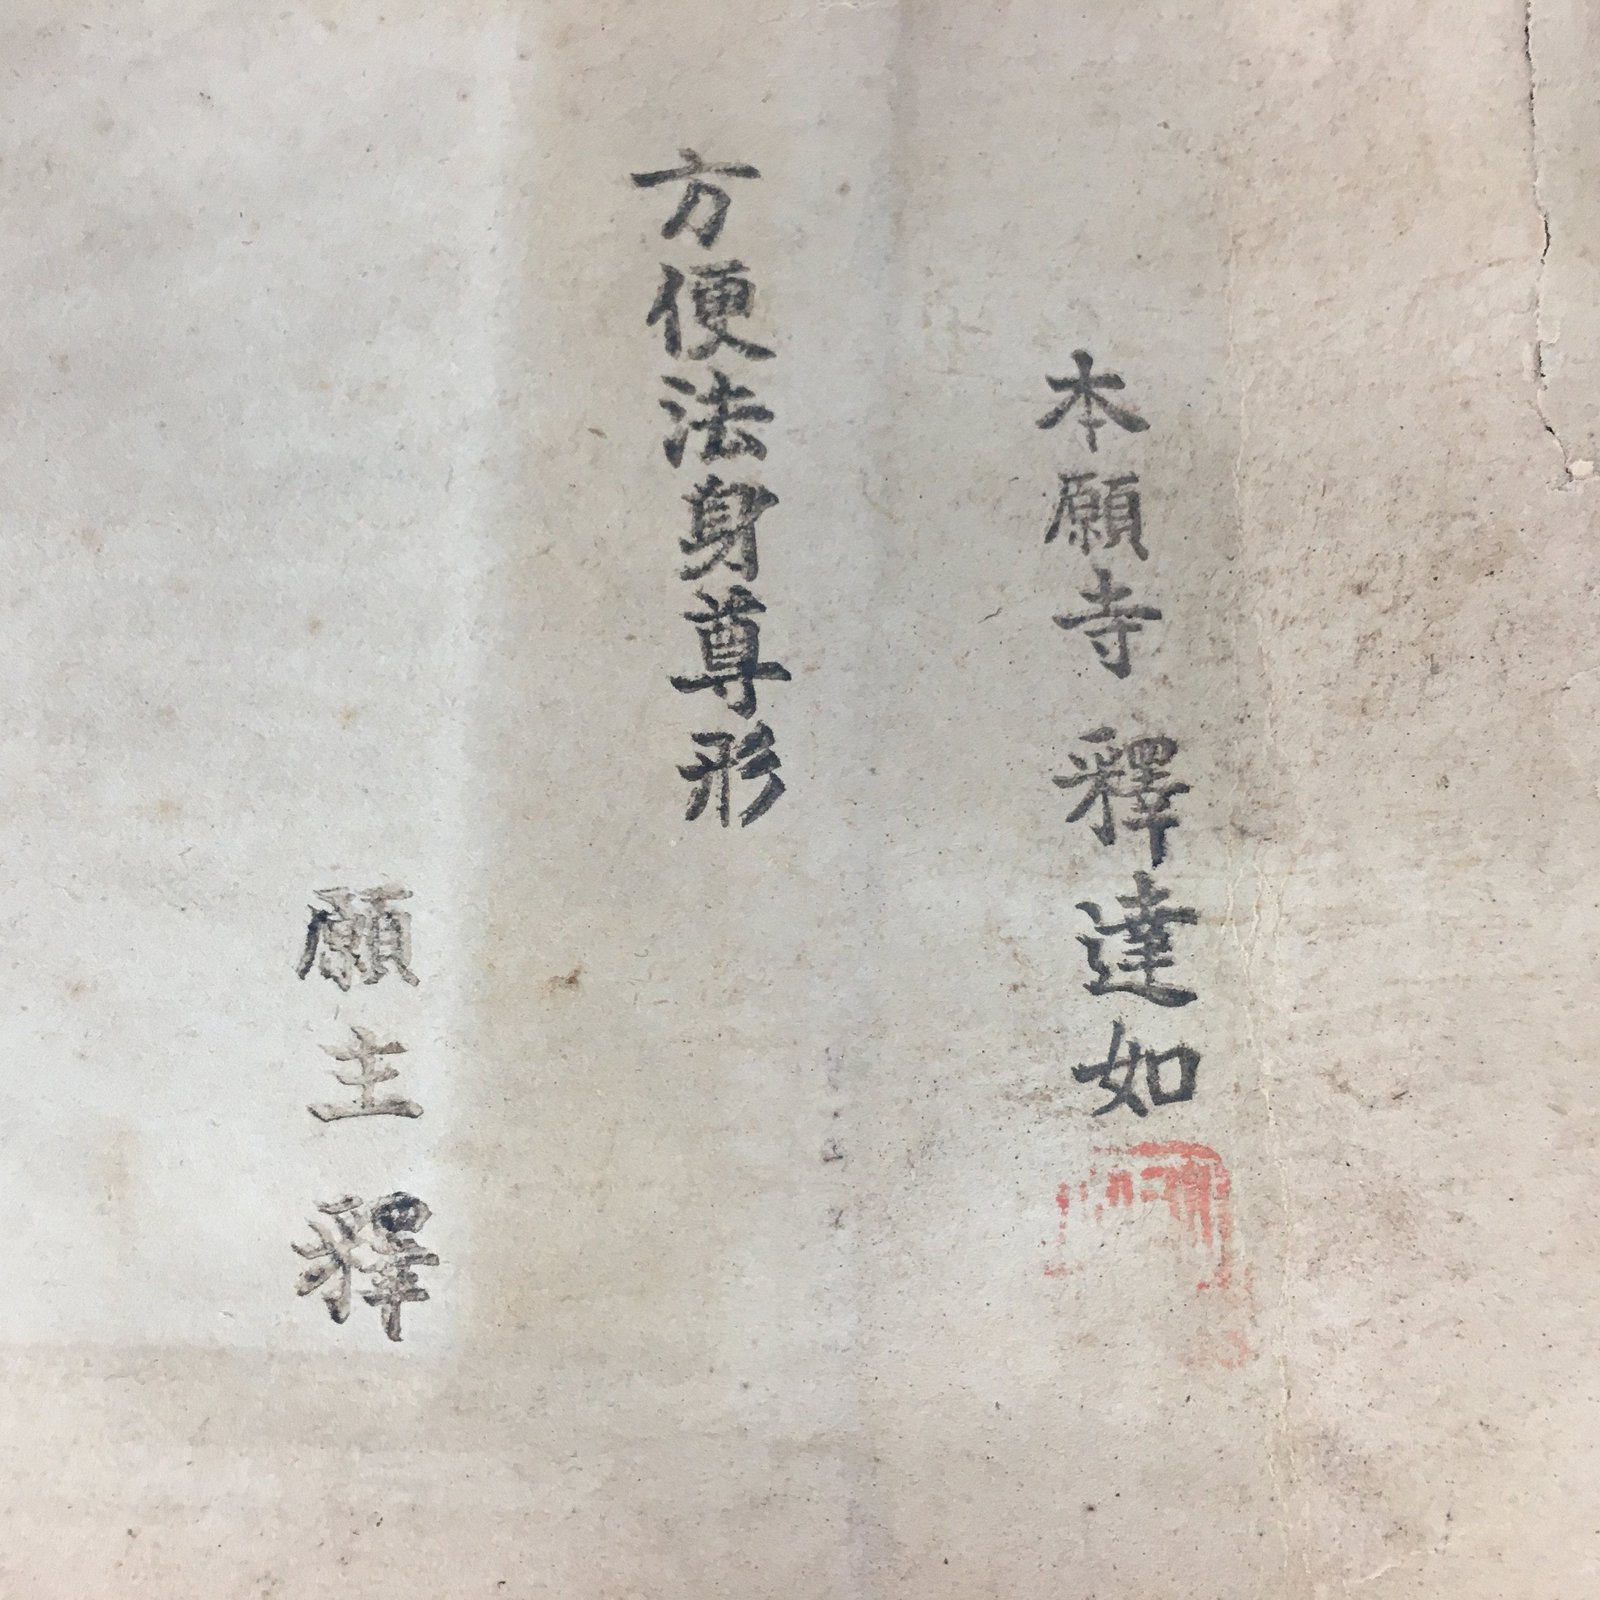 本願寺 釋達如
方便法身尊形
願主 釋